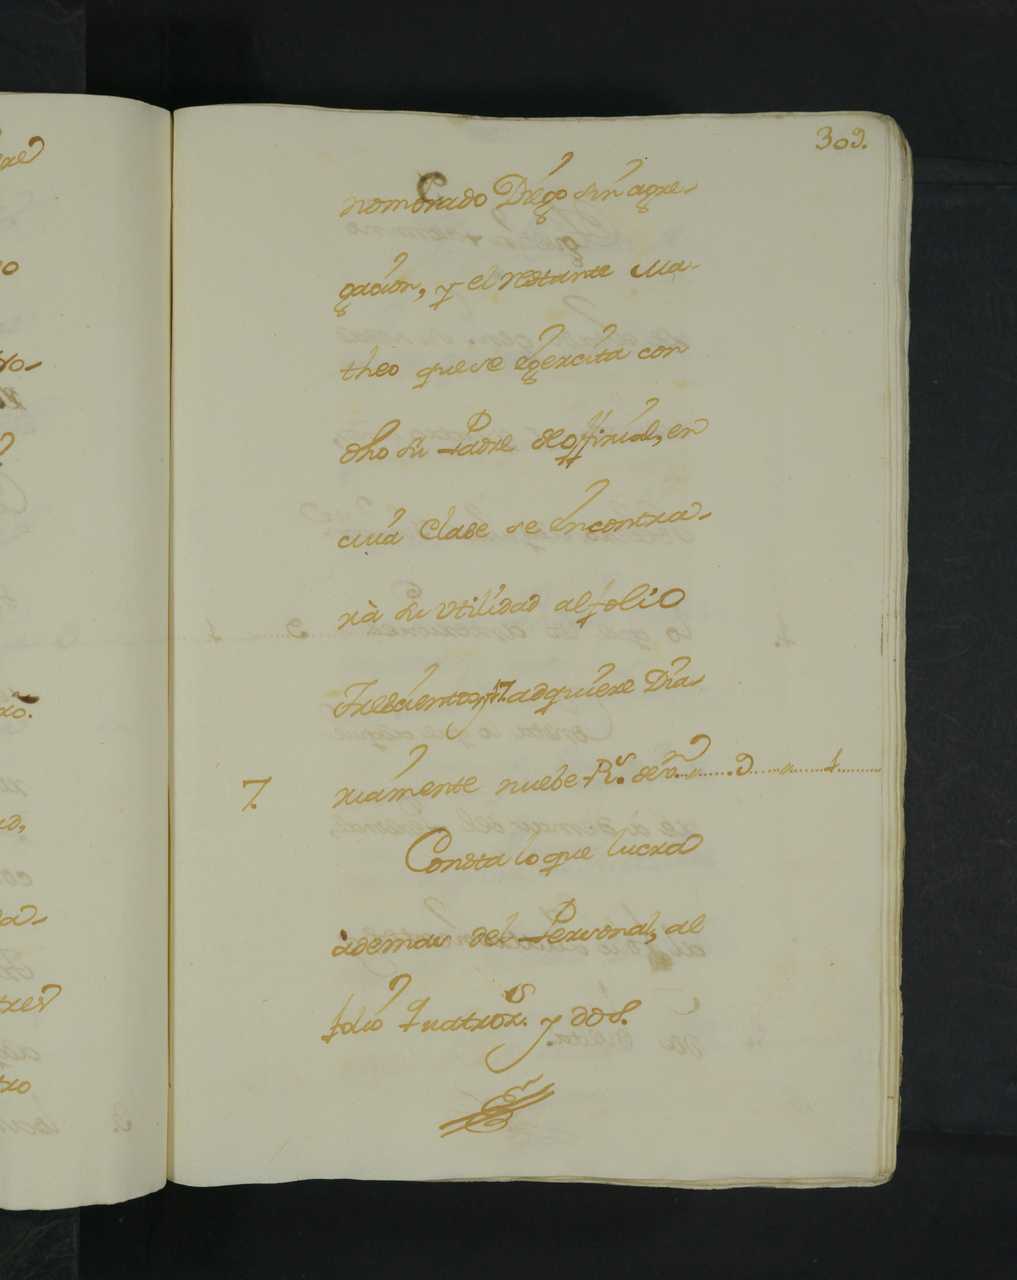 309.
nombrado Diego sin agre-
gacion, y el restante Ma-
theo que se egercita con
dho su Padre de offizial, en
cuia Clase se encontra-
rà su utilidad al folio
Tresientos y 17. adquiere Dia-
7. riamente nuebe Rs. de vn 9 4
Consta lo que lucra
àdemas del Personal, al
folio quatros. y dos.